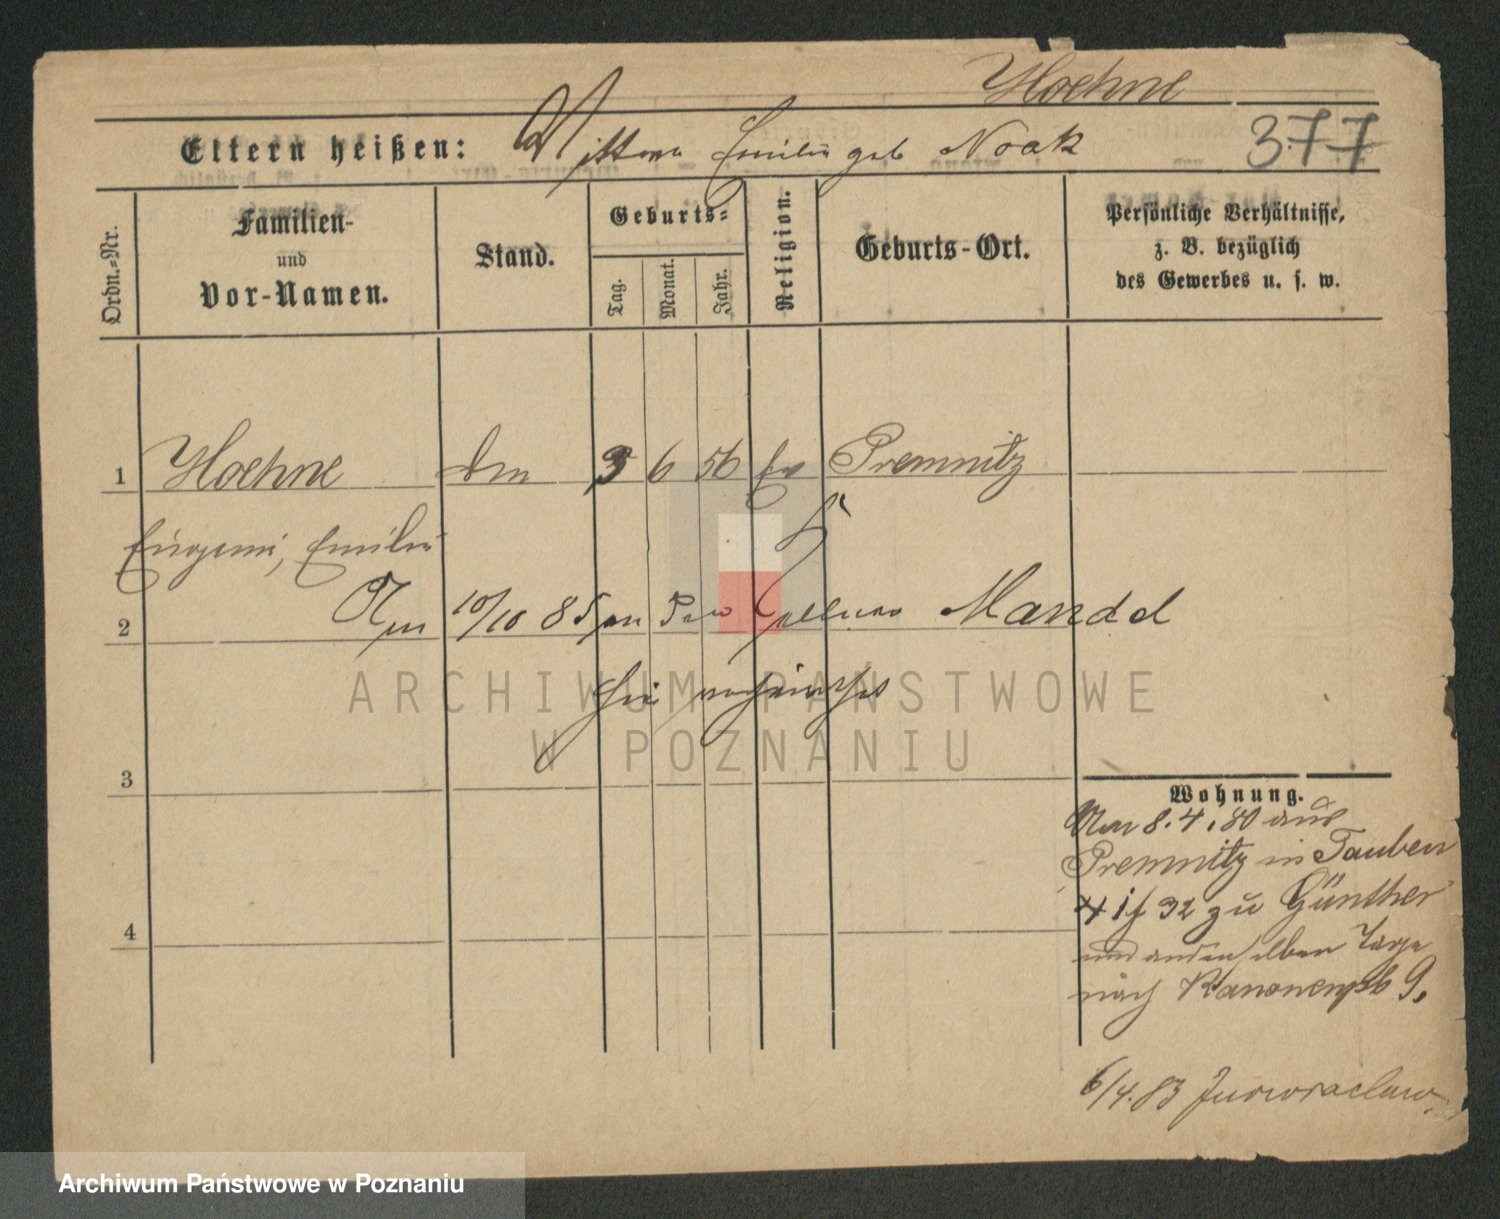 Hoehne
Eltern heißen: Emilie geb Noak 377
Ordn.-Nr.
Familien-
und
Vor-Namen.
Stand.
Geburts-
Tag. Monat. Jahr.
Religion.
Geburts-Ort.
Persönliche Verhältnisse,
z. B. bezüglich
des Gewerbes u. s. w.
1 Hoehne 3 6 56 Ev Premnitz
Eugenie, Emilie
2 10/10 85 Mandel
ARCHIWUM PAŃSTWOWE
W POZNANIU
3
Wohnung.
8.4.80 aus
Premnitz in Tauben
32 zu Günther
und andenselben Tage
nach 9.
4
6/4.83 Inowraclaw.
Archiwum Państwowe w Poznaniu